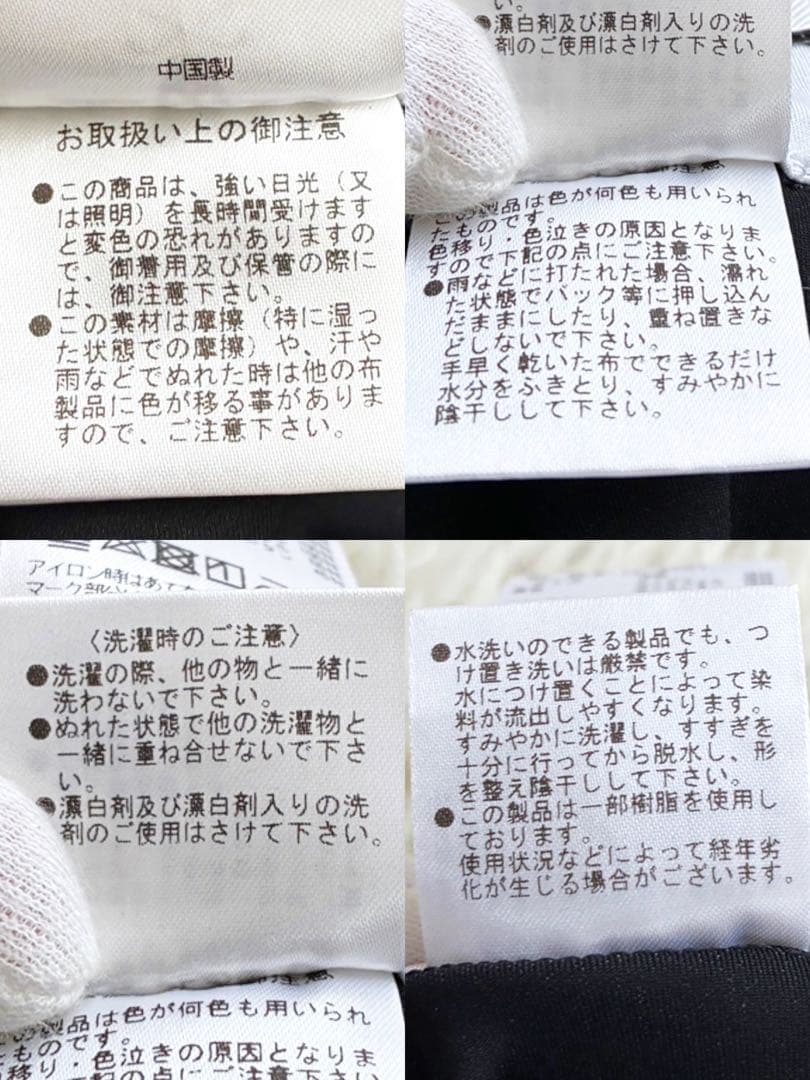 中国製
お取扱い上の御注意
●この商品は、強い日光（又
は照明）を長時間受けます
と変色の恐れがありますの
で、御着用及び保管の際に
は、御注意下さい。
●この素材は摩擦（特に湿っ
た状態での摩擦）や、汗や
雨などでぬれた時は他の布
製品に色が移る事がありま
すので、ご注意下さい。
い。
●漂白剤及び漂白剤入りの洗
剤のご使用はさけて下さい。
この製品は色が何色も用いられ
たものです。
色移り・色泣きの原因となりま
すので下記の点にご注意下さい。
●雨などに打たれた場合、濡れ
た状態でバック等に押し込ん
だままにしたり、重ね置きな
どしないで下さい。
手早く乾いた布でできるだけ
水分をふきとり、すみやかに
陰干しして下さい。
アイロン時はあて
マーク部分
〈洗濯時のご注意〉
●洗濯の際、他の物と一緒に
洗わないで下さい。
●ぬれた状態で他の洗濯物と
一緒に重ね合せないで下さ
い。
●漂白剤及び漂白剤入りの洗
剤のご使用はさけて下さい。
製品は色が何色も用いられ
ものです。
移り・色泣きの原因となりま
下記の点にご注意下さい
●水洗いのできる製品でも、つ
け置き洗いは厳禁です。
水につけ置くことによって染
料が流出しやすくなります。
すみやかに洗濯し、すすぎを
十分に行ってから脱水し、形
を整え陰干しして下さい。
●この製品は一部樹脂を使用し
ております。
使用状況などによって経年劣
化が生じる場合がございます。